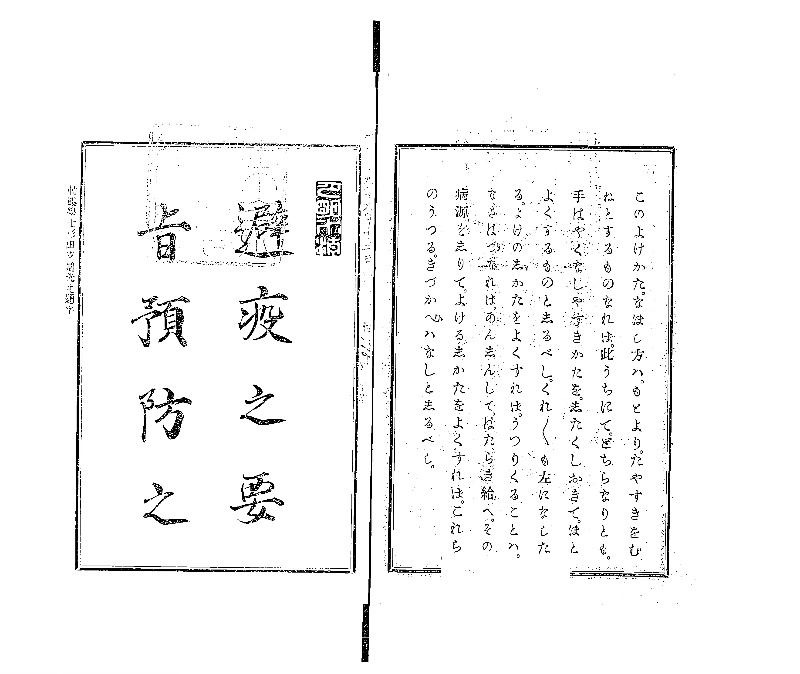 このよけかた。なほし方ハ。もとより。たやすきをむ
ねとするものなれは。此うちにて。どちらなりとも。
手はやくなしやすきかたを。ゑたくしおきて。ほと
よくするものとゑるべし。くれ〳〵も左になした
る。よけのゑかたをよくすれは。うつりくることハ。
なきはづ
なればあんゑんして。はたらき給へ。その
病源をゑりて。よけるゑかたをよくすれは。これら
のうつる。きづかへハなしとゑるべし。
避疫之要
旨預防之